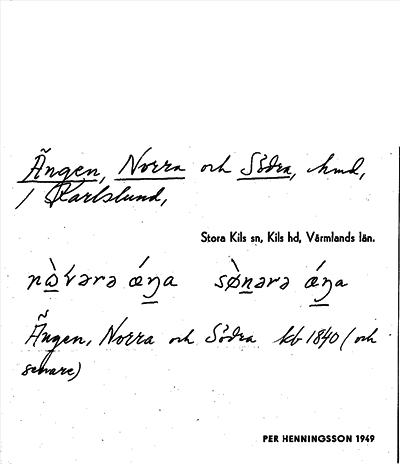 Ängen, Norra och Södra, hmd,
/ Karlslund,
Stora Kils sn, Kils hd, Värmlands län.
Ängen, Norra och Södra kb 1840 (och
senare)
PER HENNINGSSON 1949